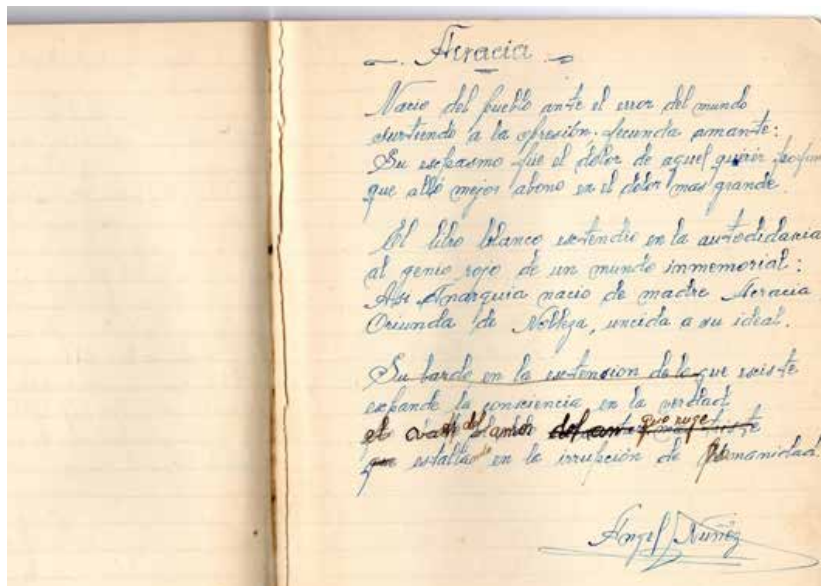 Acracia
Nacio del pueblo ante el error del mundo
surtiendo a la opresión; fecunda amante:
Su espasmo fue el dolor de aquel querer profun
que alló mejor abono en el dolor mas grande.
El libro blanco estendio en la autodidacia
al genio rojo de un mundo inmemorial:
Asi Anarquia nacio de madre Acracia
Oriunda de Nobleza, uncida a su ideal.
Su bardo en la extension de lo que existe
expande la consciencia en la verdad
el del amor que ruge
estalla en la irrupción de Humanidad.
Angel Nuñez